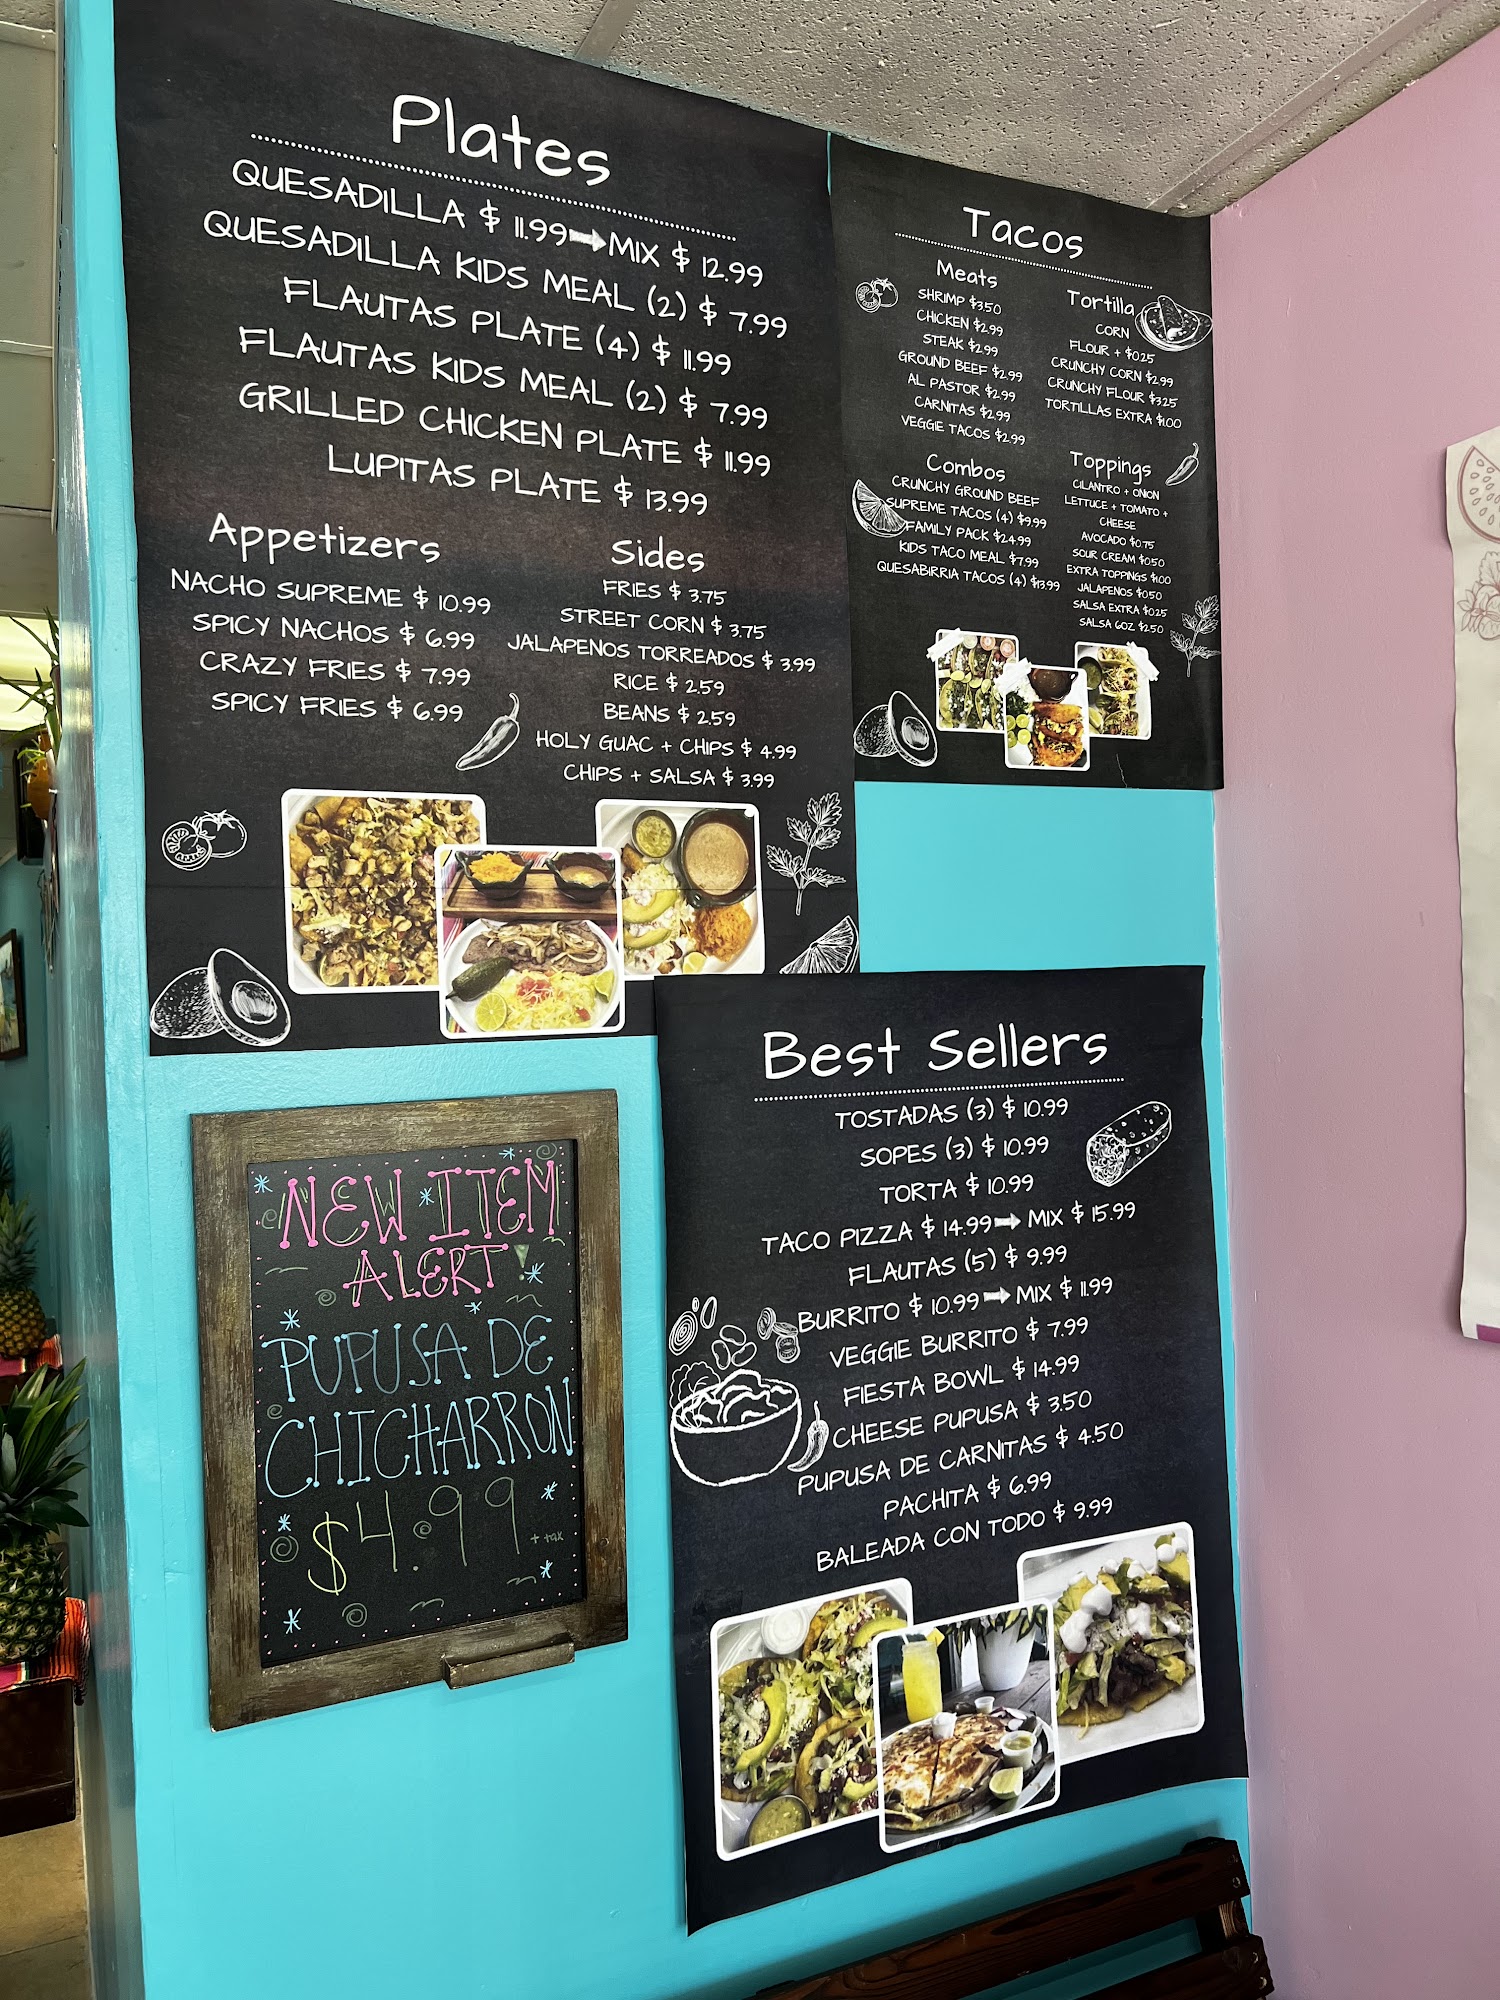 Plates
QUESADILLA $ 11.99 MIX $ 12.99
QUESADILLA KIDS MEAL (2) $ 7.99
FLAUTAS PLATE (4) $ 11.99
FLAUTAS KIDS MEAL (2) $ 7.99
GRILLED CHICKEN PLATE $ 11.99
LUPITAS PLATE $ 13.99
Appetizers
NACHO SUPREME $ 10.99
SPICY NACHOS $ 6.99
CRAZY FRIES $ 7.99
SPICY FRIES $ 6.99
Sides
FRIES $ 3.75
STREET CORN $ 3.75
JALAPENOS TORREADOS $ 3.99
RICE $ 2.59
BEANS $ 2.59
HOLY GUAC + CHIPS $ 4.99
CHIPS + SALSA $ 3.99
Tacos
Meats
SHRIMP $3.50
CHICKEN $2.99
STEAK $2.99
GROUND BEEF $2.99
AL PASTOR $2.99
CARNITAS $2.99
VEGGIE TACOS $2.99
Tortilla
CORN
FLOUR + $0.25
CRUNCHY CORN $2.99
CRUNCHY FLOUR $3.25
TORTILLAS EXTRA $1.00
Combos
CRUNCHY GROUND BEEF
SUPREME TACOS (4) $9.99
FAMILY PACK $24.99
KIDS TACO MEAL $7.99
QUESABIRRIA TACOS (4) $13.99
Toppings
CILANTRO + ONION
LETTUCE + TOMATO +
CHEESE
AVOCADO $0.75
SOUR CREAM $0.50
EXTRA TOPPINGS $1.00
JALAPENOS $0.50
SALSA EXTRA $0.25
SALSA 6OZ $2.50
Best Sellers
TOSTADAS (3) $ 10.99
SOPES (3) $ 10.99
TORTA $ 10.99
TACO PIZZA $ 14.99 MIX $ 15.99
FLAUTAS (5) $ 9.99
BURRITO $ 10.99 MIX $ 11.99
VEGGIE BURRITO $ 7.99
FIESTA BOWL $ 14.99
CHEESE PUPUSA $ 3.50
PUPUSA DE CARNITAS $ 4.50
PACHITA $ 6.99
BALEADA CON TODO $ 9.99
NEW ITEM
ALERT!
PUPUSA DE
CHICHARRON
$4.99 + tax